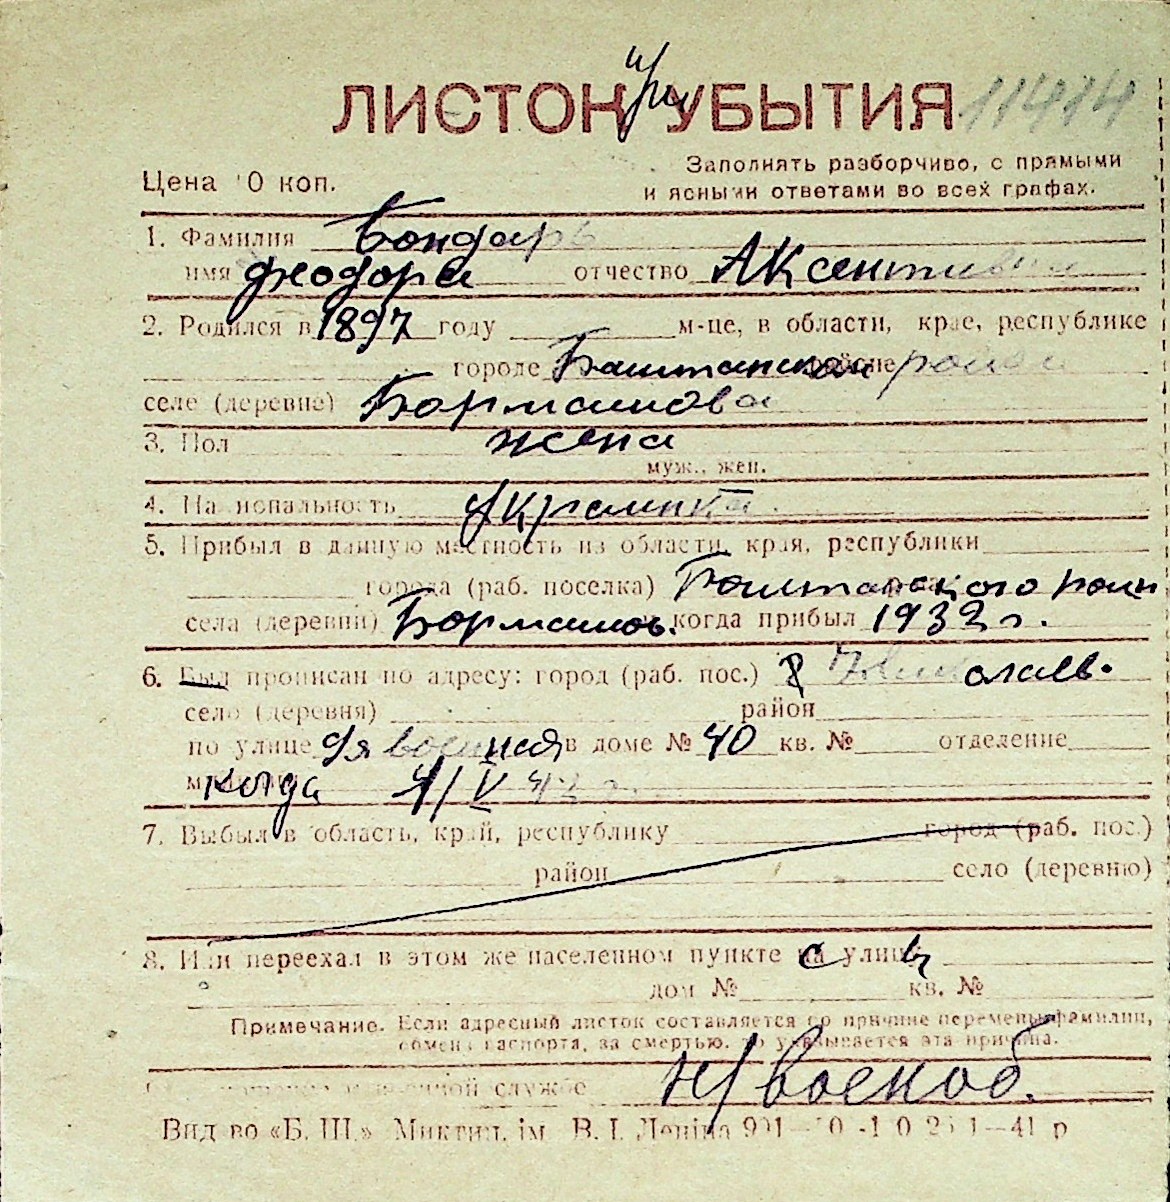 ЛИСТОК при УБЫТИЯ 11414
Цена 0 коп.
Заполнять разборчиво, с прямыми
и ясными ответами во всех графах.
1. Фамилия Бондарь
имя Феодора отчество Аксентивна
2. Родился в 1897 году м-це, в области, крае, республике
городе Баштанском районе район
селе (деревне) Бармашова
3. Пол жена
муж., жен.
4. Национальность Украинка
5. Прибыл в данную местность из области, края, республики
города (раб. поселка) Баштанского района
села (деревни) Бормашов. когда прибыл 1932 г.
6. Был прописан по адресу: город (раб. пос.) г Николаев.
село (деревня) район
по улице 8я военная в доме № 40 кв. № отделение
когда
7. Выбыл в область, край, республику город (раб. пос.)
район село (деревню)
8. Или переехал в этом же населенном пункте с улицы
дом № кв. №
Примечание. Если адресный листок составляется по причине перемены фамилии,
обмена паспорта, за смертью, то указывается эта причина.
военной службе н/военоб.
Вид во «Б. Ш.» Микгип. ім В. І. Леніна